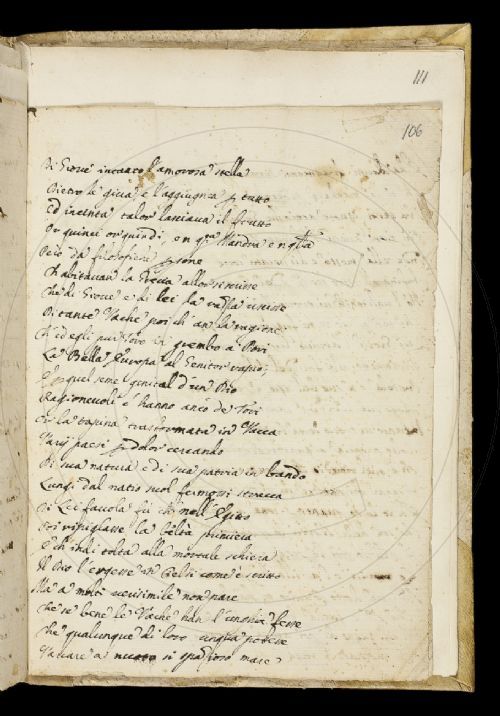 111
106
Di Giove intanto l'amorosa stella
Dietro le giva, e l'aggiugnea p tutto
Ed incinta talor lasciava il frutto
Or quinci or quindi, e in qta Mandra e in qlla
Però da filosofiche psone
Ch'abitavan la Grecia allor si scrisse
Che di Giove e di lei la razza uscisse
Di tante Vache poi ch' an la ragione
Ch' ed egli pur fovo di grembo a Bovi
La Bella Europa al Genitor rapio;
E p quel seme genital d'un Dio
Ragionevoli s' hanno anco de Tori
Or la tapina trasformata in Vacca
Varij paesi p dolor cercando
Di sua natura e di sua patria in bando
Lungi dal natio suol fermossi stracca
Di Lei favola fù che nell' Egitto
Poi ripigliasse la beltà primiera
E ch' indi tolta alla mortale schiera
Il Dio l' ergesse in Cielo come è scritto
Ma a molti verisimile non pare
Che se bene le Vache han l' unghia fesse
Che qualunque di loro unqua potesse
Varcare a nuoto sì spazioso mare